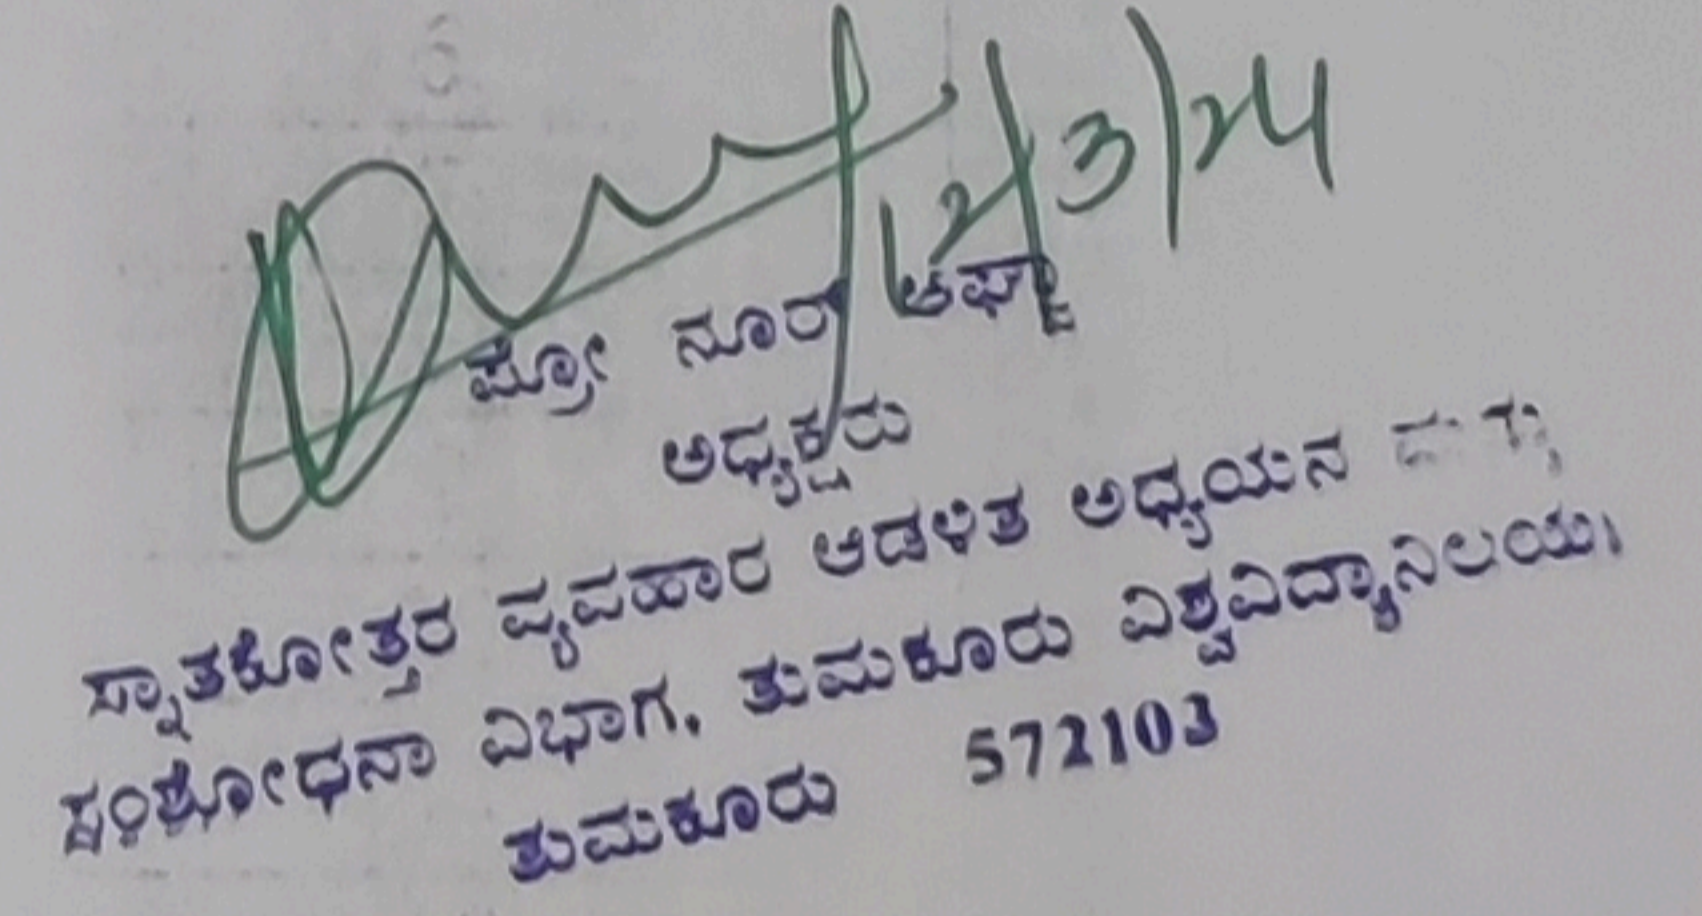 12/3/24
ಪ್ರೋ ನೂರ್ ಅಫ್ಜಾ
ಅಧ್ಯಕ್ಷರು
ಸ್ನಾತಕೋತ್ತರ ವ್ಯವಹಾರ ಆಡಳಿತ ಅಧ್ಯಯನ ಮತ್ತು
ಸಂಶೋಧನಾ ವಿಭಾಗ, ತುಮಕೂರು ವಿಶ್ವವಿದ್ಯಾನಿಲಯ,
ತುಮಕೂರು 572103